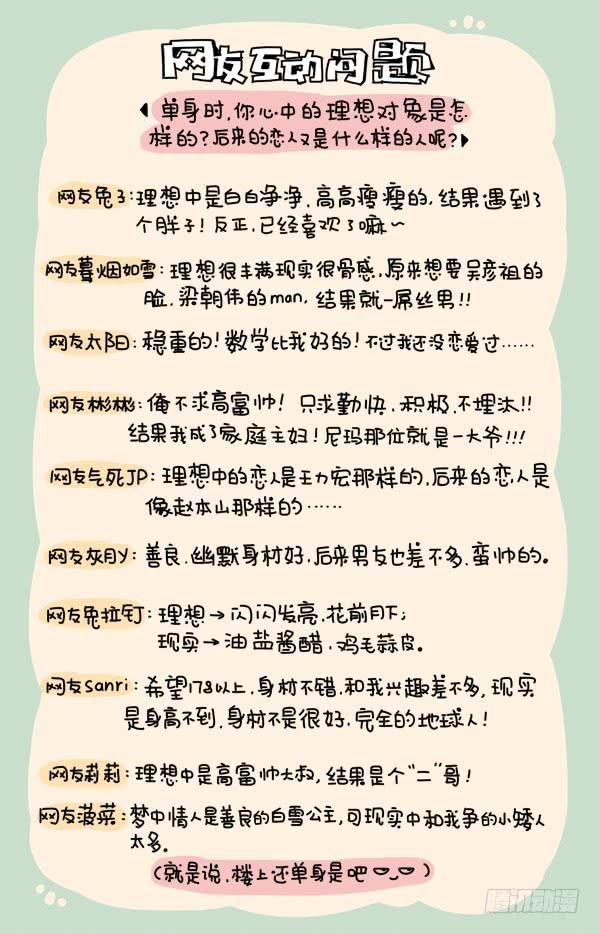 网友互动问题
单身时,你心中的理想对象是怎
样的?后来的恋人又是什么样的人呢?
网友兔子:理想中是白白净净、高高瘦瘦的,结果遇到了
个胖子!反正,已经喜欢了嘛~
网友暮烟如雪:理想很丰满现实很骨感,原来想要吴彦祖的
脸,梁朝伟的man,结果就一屌丝男!!
网友太阳:稳重的!数学比我好的!不过我还没恋爱过……
网友彬彬:俺不求高富帅!只求勤快、积极、不埋汰!!
结果我成了家庭主妇!尼玛那位就是一大爷!!!
网友气死JP:理想中的恋人是王力宏那样的,后来的恋人是
像赵本山那样的……
网友灰月Y:善良、幽默身材好,后来男友也差不多,蛮帅的。
网友兔拉钉:理想→闪闪发亮,花前月下;
现实→油盐酱醋,鸡毛蒜皮。
网友Sanri:希望178以上,身材不错,和我兴趣差不多,现实
是身高不到,身材不是很好,完全的地球人!
网友莉莉:理想中是高富帅大叔,结果是个“二”哥!
网友菠菜:梦中情人是善良的白雪公主,可现实中和我争的小矮人
太多。
(就是说,楼上还单身是吧)
腾讯动漫